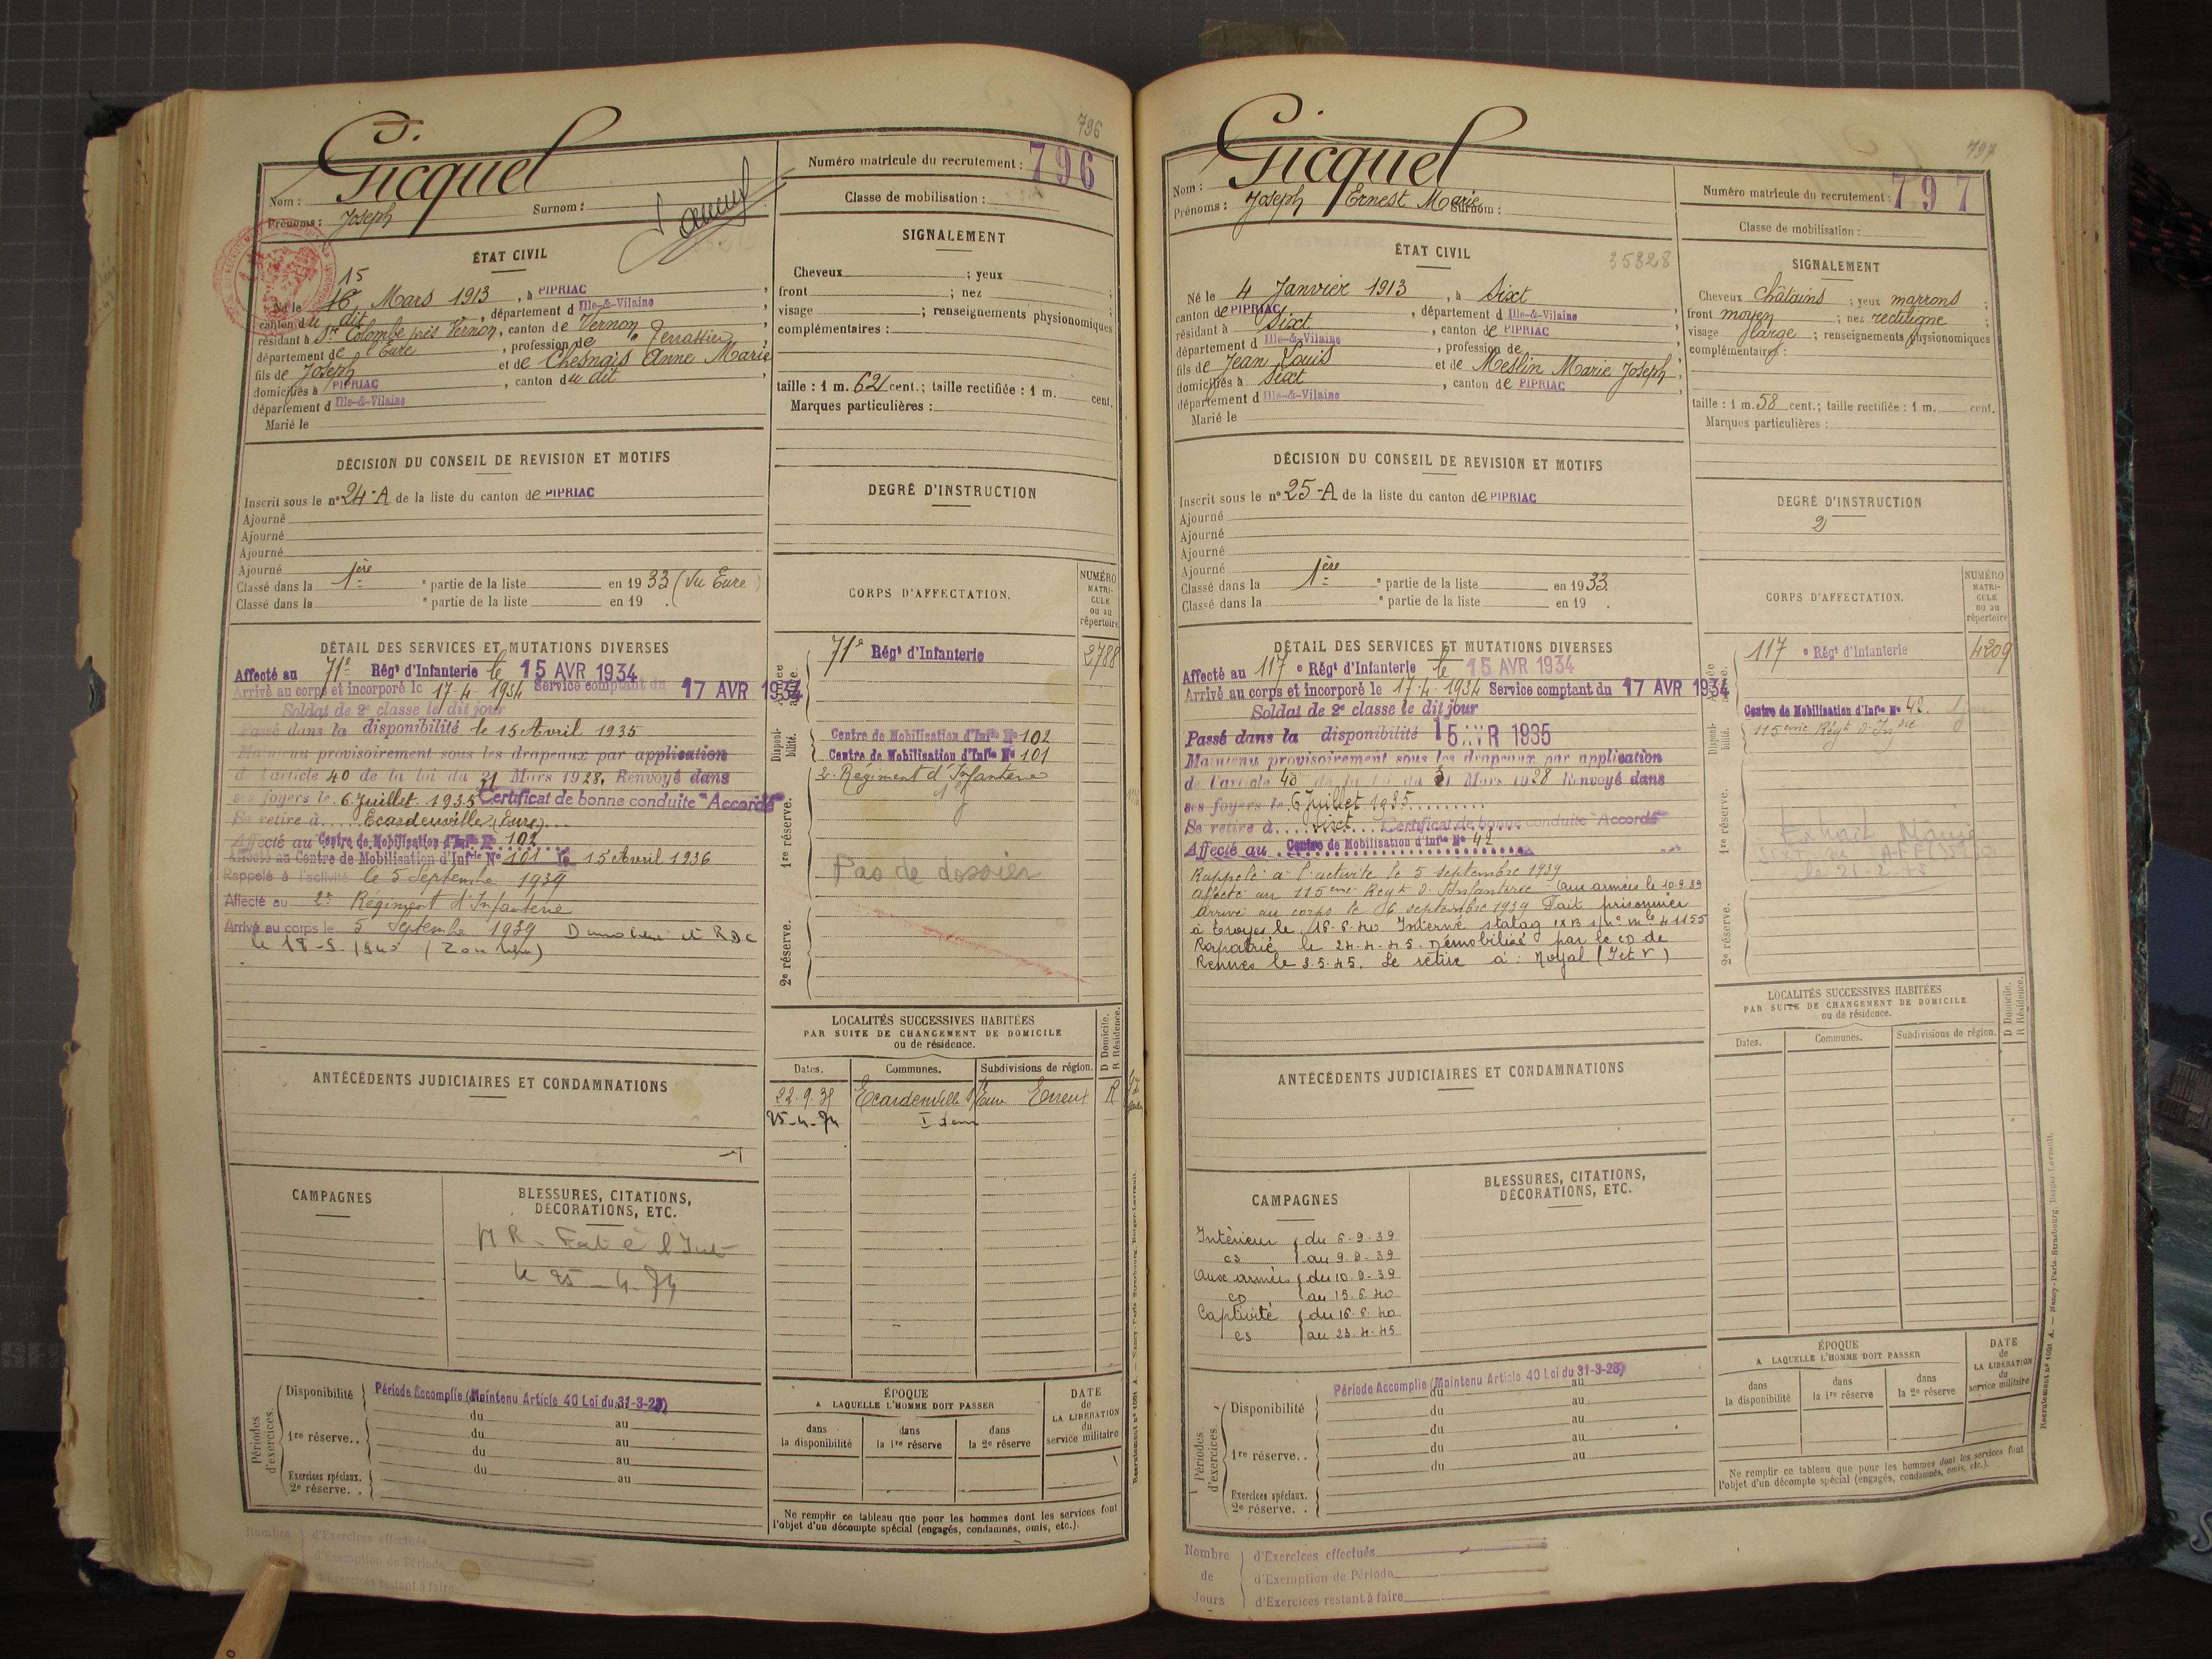 796
Gicquel
Nom :
Prénoms : Joseph Surnom :
Numéro matricule du recrutement : 796
Classe de mobilisation :
ÉTAT CIVIL
15
Né le 16 Mars 1913, à PIPRIAC
canton du dit, département d Ille-&-Vilaine
résidant à Ste Colombe près Vernon, canton de Vernon
département de l'Eure, profession de Terrassier
fils de Joseph et de Chesnais Anne Marie
domiciliés à PIPRIAC, canton du dit
département d Ille-&-Vilaine
Marié le
SIGNALEMENT
Cheveux ; yeux
front ; nez
visage ; renseignements physionomiques
complémentaires :
taille : 1 m. 62 cent. ; taille rectifiée : 1 m. cent.
Marques particulières :
DÉCISION DU CONSEIL DE REVISION ET MOTIFS
Inscrit sous le n° 24-A de la liste du canton de PIPRIAC
Ajourné
Ajourné
Ajourné
Ajourné
Classé dans la 1ère partie de la liste en 1933 (Vu Eure)
Classé dans la e partie de la liste en 19 .
DEGRÉ D'INSTRUCTION
DÉTAIL DES SERVICES ET MUTATIONS DIVERSES
Affecté au 71e Régt d'Infanterie le 15 AVR 1934
Arrivé au corps et incorporé le 17-4-1934 Service comptant du 17 AVR 1934
Soldat de 2e classe le dit jour
Passé dans la disponibilité le 15 Avril 1935
Maintenu provisoirement sous les drapeaux par application
de l'article 40 de la loi du 31 Mars 1928. Renvoyé dans
ses foyers le 6 Juillet 1935 Certificat de bonne conduite "Accordé"
Se retire à Ecardenville (Eure)
Affecté au Centre de Mobilisation d'Infie N° 102
Affecté au Centre de Mobilisation d'Infrie N° 101 le 15 Avril 1936
Rappelé à l'activité le 5 Septembre 1939
Affecté au 2e Régiment d'Infanterie
Arrivé au corps le 5 Septembre 1939
le 18-9.1940
CORPS D'AFFECTATION.
NUMÉRO MATRICULE ou au répertoire
Armée active.
71e Régt d'Infanterie 2788
Disponibilité.
Centre de Mobilisation d'Infie N° 102
Centre de Mobilisation d'Infie N° 101
2e Régiment d'Infanterie
1re réserve.
Pas de dossier
2e réserve.
LOCALITÉS SUCCESSIVES HABITÉES
PAR SUITE DE CHANGEMENT DE DOMICILE
ou de résidence.
Dates. Communes. Subdivisions de région. D Domicile. R Résidence.
22.9.35 Ecardenville Evreux R
25-4-74
ANTÉCÉDENTS JUDICIAIRES ET CONDAMNATIONS
CAMPAGNES
BLESSURES, CITATIONS,
DÉCORATIONS, ETC.
le 25-4-74
Périodes d'exercices.
Disponibilité Période Accomplie (Maintenu Article 40 Loi du 31-3-28)
du au
1re réserve. . du au
du au
Exercices spéciaux. du au
2e réserve. .
ÉPOQUE
A LAQUELLE L'HOMME DOIT PASSER
dans la disponibilité
dans la 1re réserve
dans la 2e réserve
DATE de LA LIBÉRATION du service militaire
Ne remplir ce tableau que pour les hommes dont les services font
l'objet d'un décompte spécial (engagés, condamnés, omis, etc.).
Nombre d'Exercices effectués
de d'Exemption de Période
d'Exercices restant à faire
797
Gicquel
Nom :
Prénoms : Joseph Ernest Marie Surnom :
Numéro matricule du recrutement : 797
Classe de mobilisation :
35328
ÉTAT CIVIL
Né le 4 Janvier 1913, à Sixt
canton de PIPRIAC, département d Ille-&-Vilaine
résidant à Sixt, canton de PIPRIAC
département d Ille-&-Vilaine, profession de
fils de Jean Louis et de Meslin Marie Joseph
domiciliés à Sixt, canton de PIPRIAC
département d Ille-&-Vilaine
Marié le
SIGNALEMENT
Cheveux châtains ; yeux marrons
front moyen ; nez rectiligne
visage large ; renseignements physionomiques
complémentaires :
taille : 1 m. 58 cent. ; taille rectifiée : 1 m. cent.
Marques particulières :
DÉCISION DU CONSEIL DE REVISION ET MOTIFS
Inscrit sous le n° 25-A de la liste du canton de PIPRIAC
Ajourné
Ajourné
Ajourné
Ajourné
Classé dans la 1ère partie de la liste en 1933.
Classé dans la e partie de la liste en 19 .
DEGRÉ D'INSTRUCTION
2
DÉTAIL DES SERVICES ET MUTATIONS DIVERSES
Affecté au 117e Régt d'Infanterie le 15 AVR 1934
Arrivé au corps et incorporé le 17-4-1934 Service comptant du 17 AVR 1934
Soldat de 2e classe le dit jour
Passé dans la disponibilité 15 AVR 1935
Maintenu provisoirement sous les drapeaux par application
de l'article 40 de la loi du 31 Mars 1928 Renvoyé dans
ses foyers le 6 Juillet 1935
Se retire à Sixt Certificat de bonne conduite "Accordé"
Affecté au Centre de Mobilisation d'Infie N° 42
Rappelé à l'activité le 5 septembre 1939
Affecté au 115eme Regt d'Infanterie Aux armées le 10.9.39
Arrivé au corps le 6 septembre 1939 Fait prisonnier
à Troyes le 16.6.40 Interné stalag IXB s/ne mle 41155
Rapatrié le 24.4.45. Démobilisé par le CD de
Rennes le 3.5.45. Se retire à : Noyal (I et V)
CORPS D'AFFECTATION.
NUMÉRO MATRICULE ou au répertoire
Armée active.
117e Régt d'Infanterie 4209
Disponibilité.
Centre de Mobilisation d'Infie N° 42.
115eme Régt d'Infie
1re réserve.
2e réserve.
LOCALITÉS SUCCESSIVES HABITÉES
PAR SUITE DE CHANGEMENT DE DOMICILE
ou de résidence.
Dates. Communes. Subdivisions de région. D Domicile. R Résidence.
ANTÉCÉDENTS JUDICIAIRES ET CONDAMNATIONS
CAMPAGNES
Intérieur du 6-9-39
cs au 9.9.39
Aux armées du 10.9.39
CD au 15.6.40
Captivité du 16.6.40
cs au 23.4.45
BLESSURES, CITATIONS,
DÉCORATIONS, ETC.
Périodes d'exercices.
Période Accomplie (Maintenu Article 40 Loi du 31-3-28)
Disponibilité du au
du au
1re réserve. . du au
du au
Exercices spéciaux.
2e réserve. .
ÉPOQUE
A LAQUELLE L'HOMME DOIT PASSER
dans la disponibilité
dans la 1re réserve
dans la 2e réserve
DATE de LA LIBÉRATION du service militaire
Ne remplir ce tableau que pour les hommes dont les services font
l'objet d'un décompte spécial (engagés, condamnés, omis, etc.).
Nombre d'Exercices effectués
de d'Exemption de Période
Jours d'Exercices restant à faire